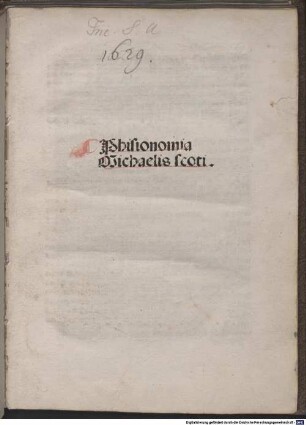 Inc. S. a.
1629.
Phisionomia
Michaelis scoti.
Digitalisierung gefördert durch die Deutsche Forschungsgemeinschaft